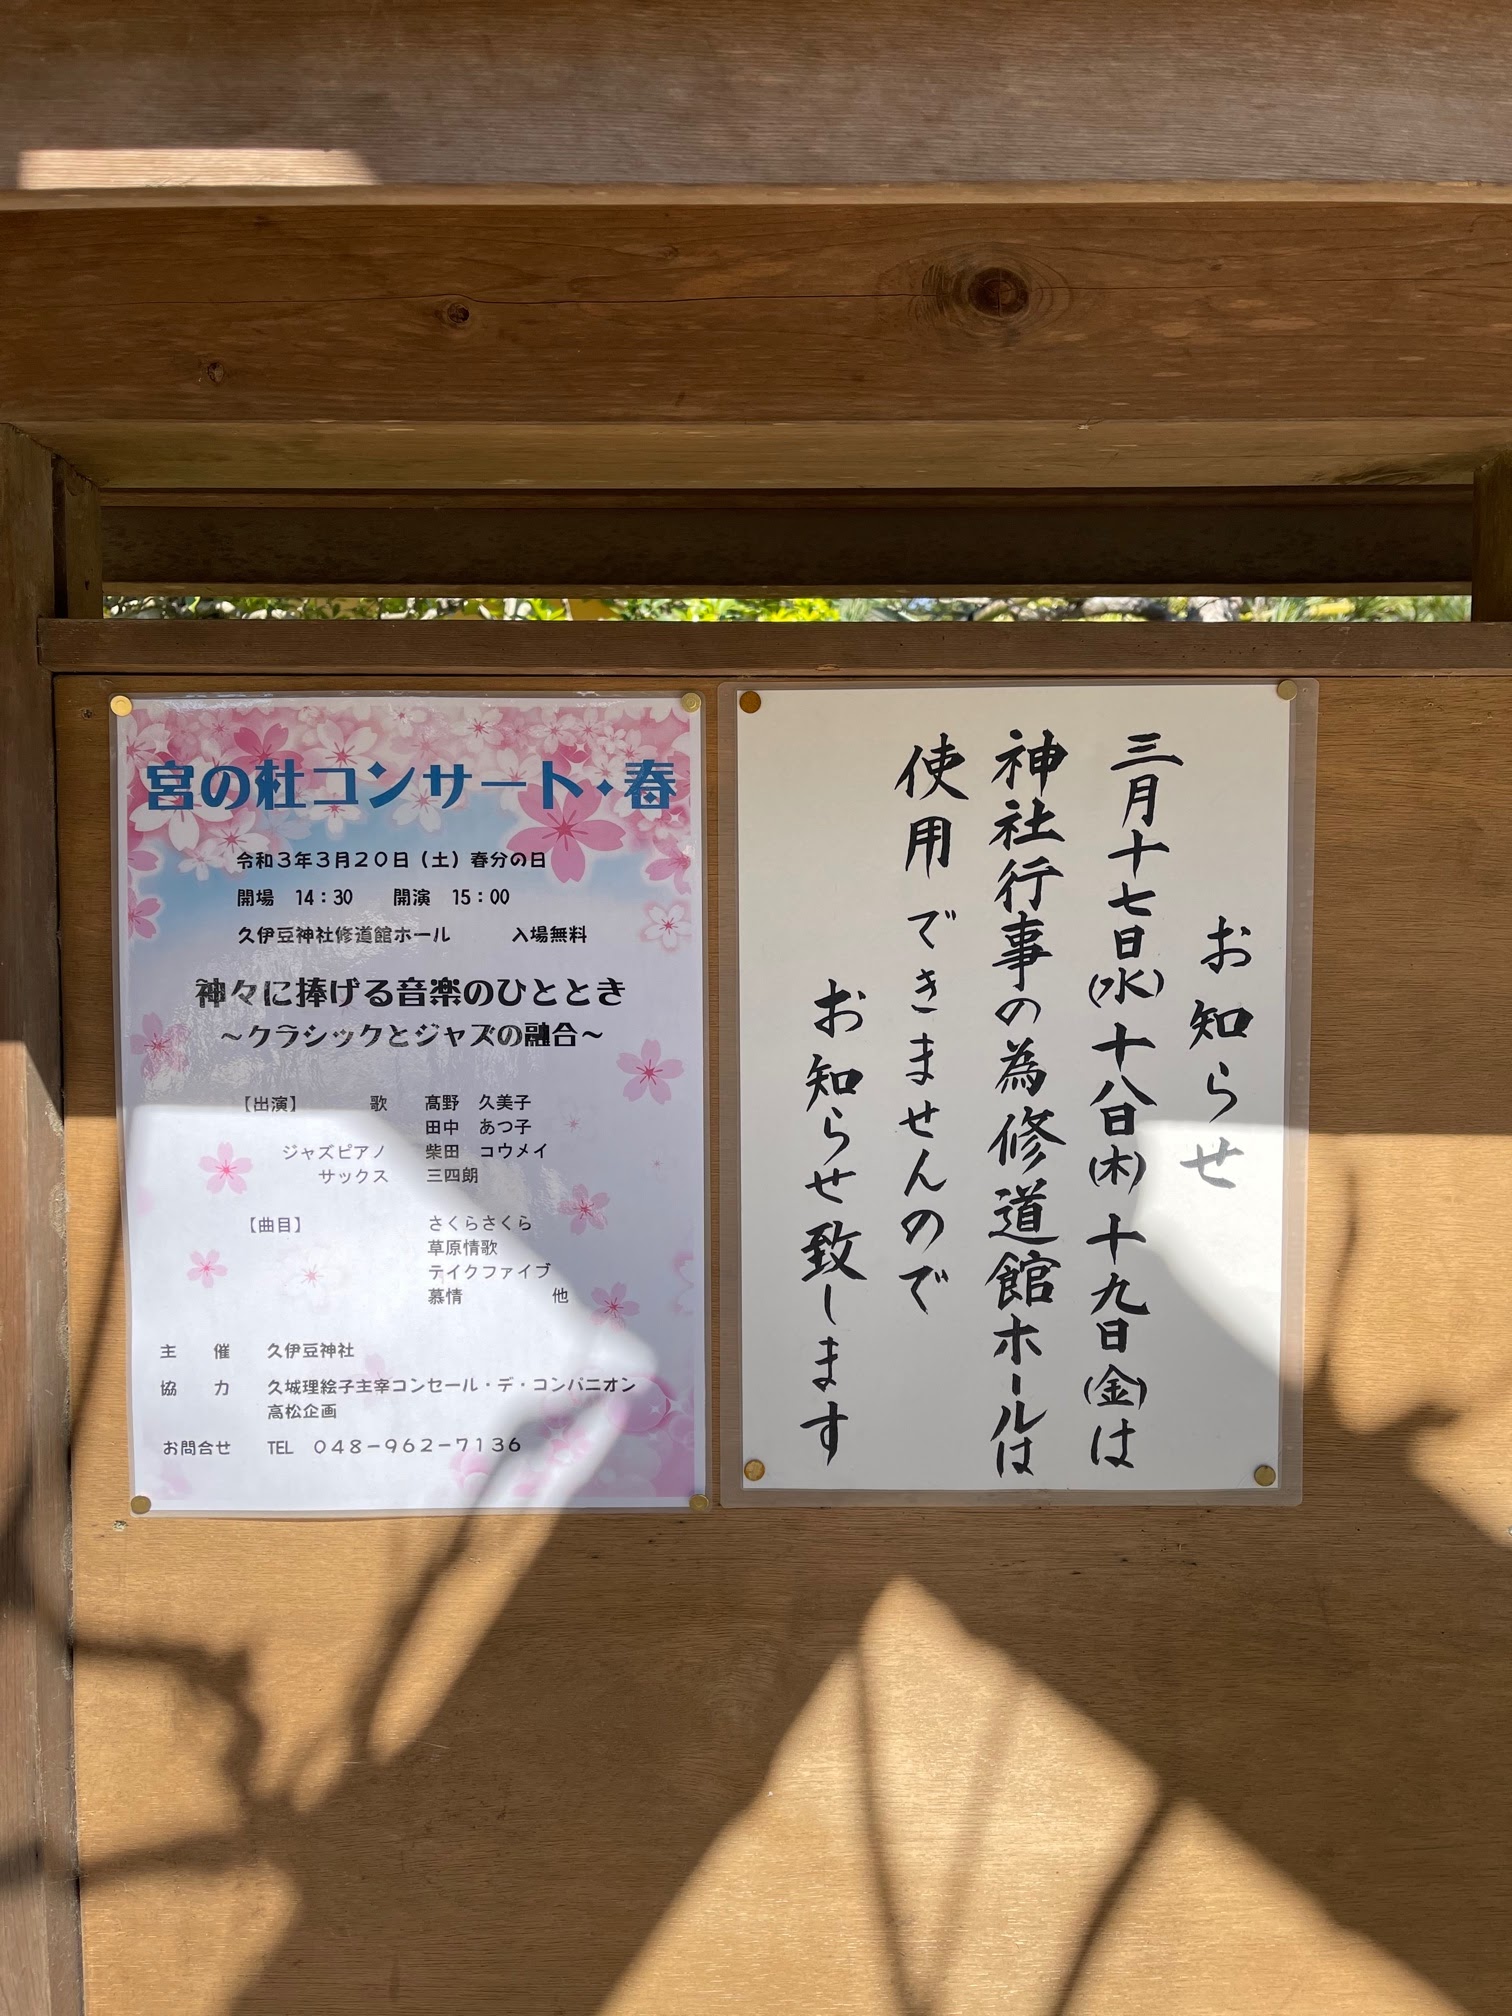 宮の杜コンサート・春
令和3年3月20日（土）春分の日
開場　14：30　　開演　15：00
久伊豆神社修道館ホール　　　入場無料
神々に捧げる音楽のひととき
～クラシックとジャズの融合～
【出演】　　　歌　　髙野　久美子
田中　あつ子
ジャズピアノ　　柴田　コウメイ
サックス　　三四朗
【曲目】　　　さくらさくら
草原情歌
テイクファイブ
慕情　　　　　他
主　催　　久伊豆神社
協　力　　久城理絵子主宰コンセール・デ・コンパニオン
高松企画
お問合せ　　TEL　048－962－7136
お知らせ
三月十七日(水)十八日(木)十九日(金)は
神社行事の為修道館ホールは
使用できませんので
お知らせ致します